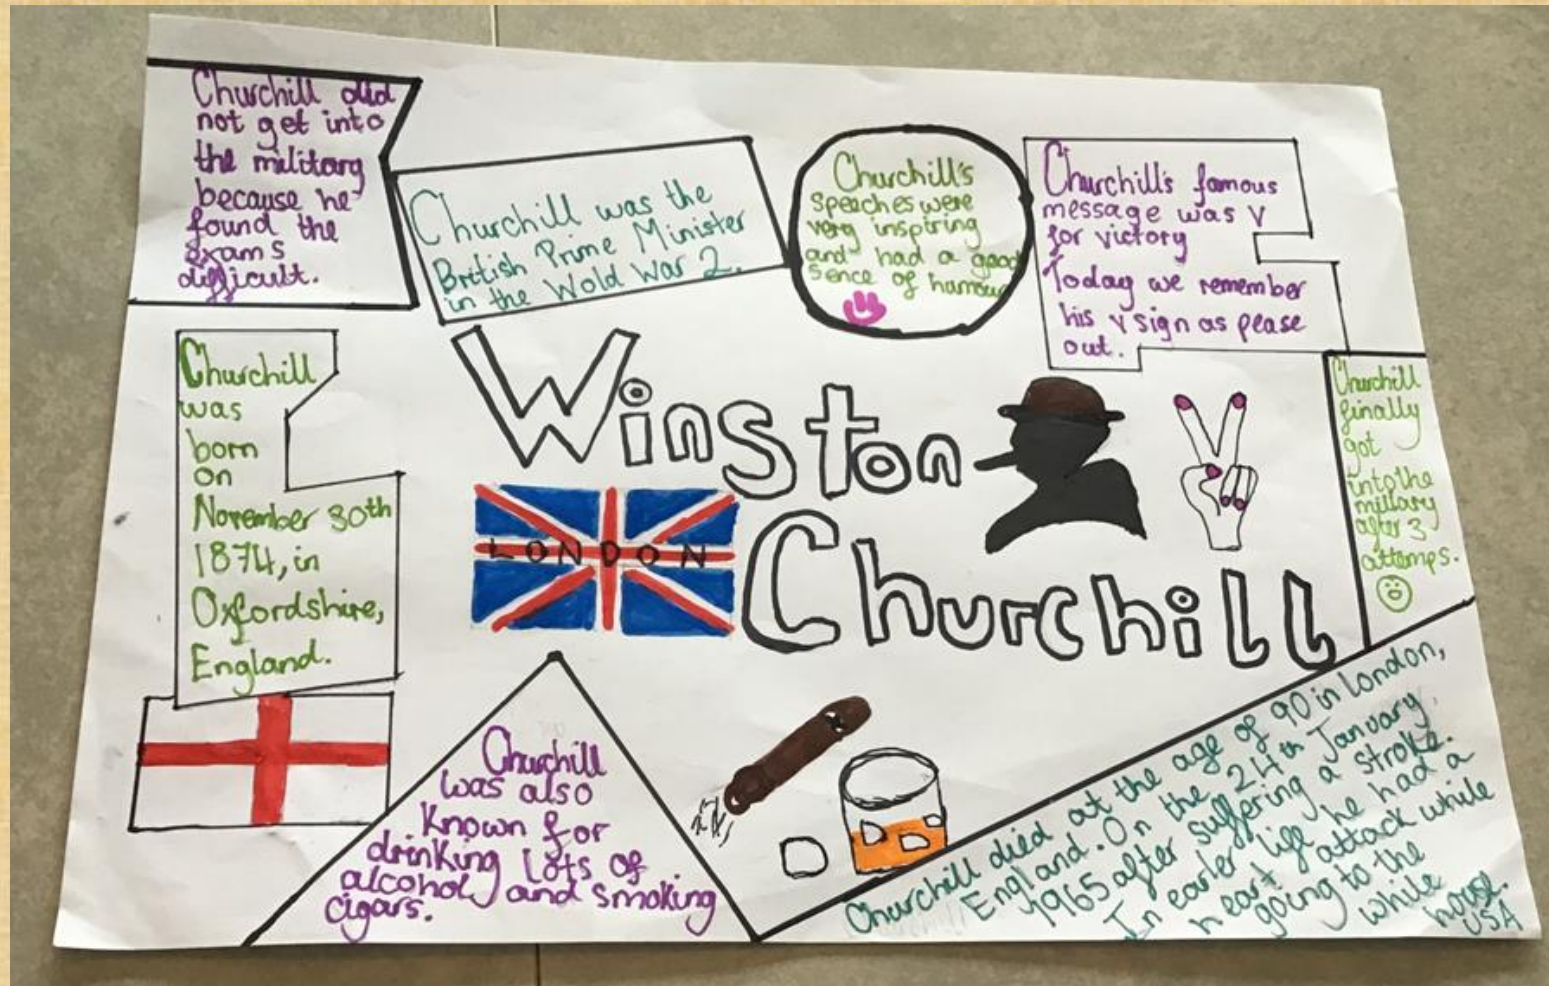 Churchill did
not get into
the military
because he
found the
exams
difficult.
Churchill was the
British Prime Minister
in the Wold War 2.
Churchill's
speaches were
very inspiring
and had a good
sence of hamour
Churchill's famous
message was V
for victory
Today we remember
his v sign as pease
out.
Churchill
was
born
on
November 30th
1874, in
Oxfordshire,
England.
Winston
LONDON
Churchill
Churchill
finally
got
into the
millary
after 3
attamps.
Churchill
was also
known for
drinking lots of
alcohol and smoking
cigars.
Churchill died at the age of 90 in London,
England. On the 24th January
1965 after suffering a stroke.
In earler life he had a
heart attack while
going to the
while
house.
USA